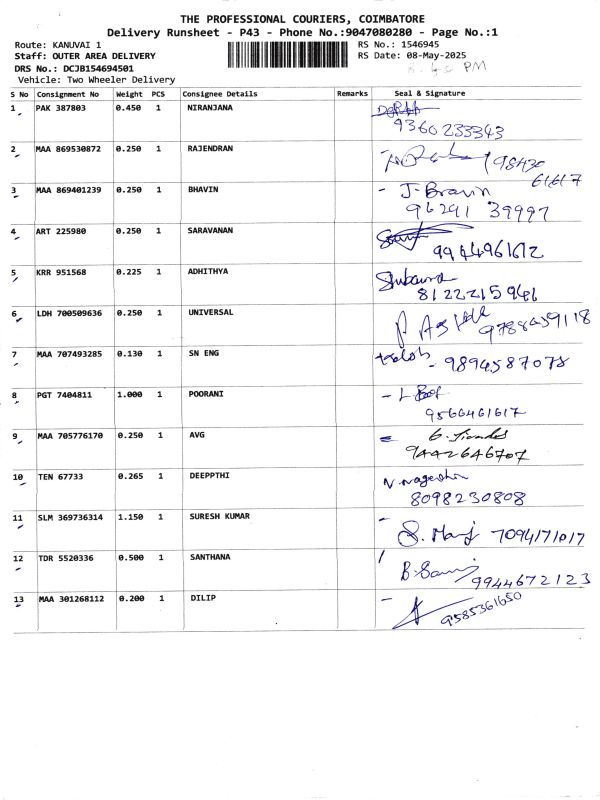 THE PROFESSIONAL COURIERS, COIMBATORE
Delivery Runsheet - P43 - Phone No.:9047080280 - Page No.:1
Route: KANUVAI 1
RS No.: 1546945
Staff: OUTER AREA DELIVERY
RS Date: 08-May-2025
DRS No.: DCJB154694501
PM
Vehicle: Two Wheeler Delivery
S No Consignment No Weight PCS Consignee Details Remarks Seal & Signature
1 PAK 387803 0.450 1 NIRANJANA
9360233343
2 MAA 869530872 0.250 1 RAJENDRAN
98430
61617
3 MAA 869401239 0.250 1 BHAVIN - J. Bravin
96291 39997
4 ART 225980 0.250 1 SARAVANAN
9944961612
5 KRR 951568 0.225 1 ADHITHYA
8122215961
6 LDH 700509636 0.250 1 UNIVERSAL
9788459118
7 MAA 707493285 0.130 1 SN ENG
- 9894587078
8 PGT 7404811 1.000 1 POORANI
9566461617
9 MAA 705776170 0.250 1 AVG
9442646707
10 TEN 67733 0.265 1 DEEPPTHI
8098230808
11 SLM 369736314 1.150 1 SURESH KUMAR
7094171017
12 TDR 5520336 0.500 1 SANTHANA
9944672123
13 MAA 301268112 0.200 1 DILIP
9585361650